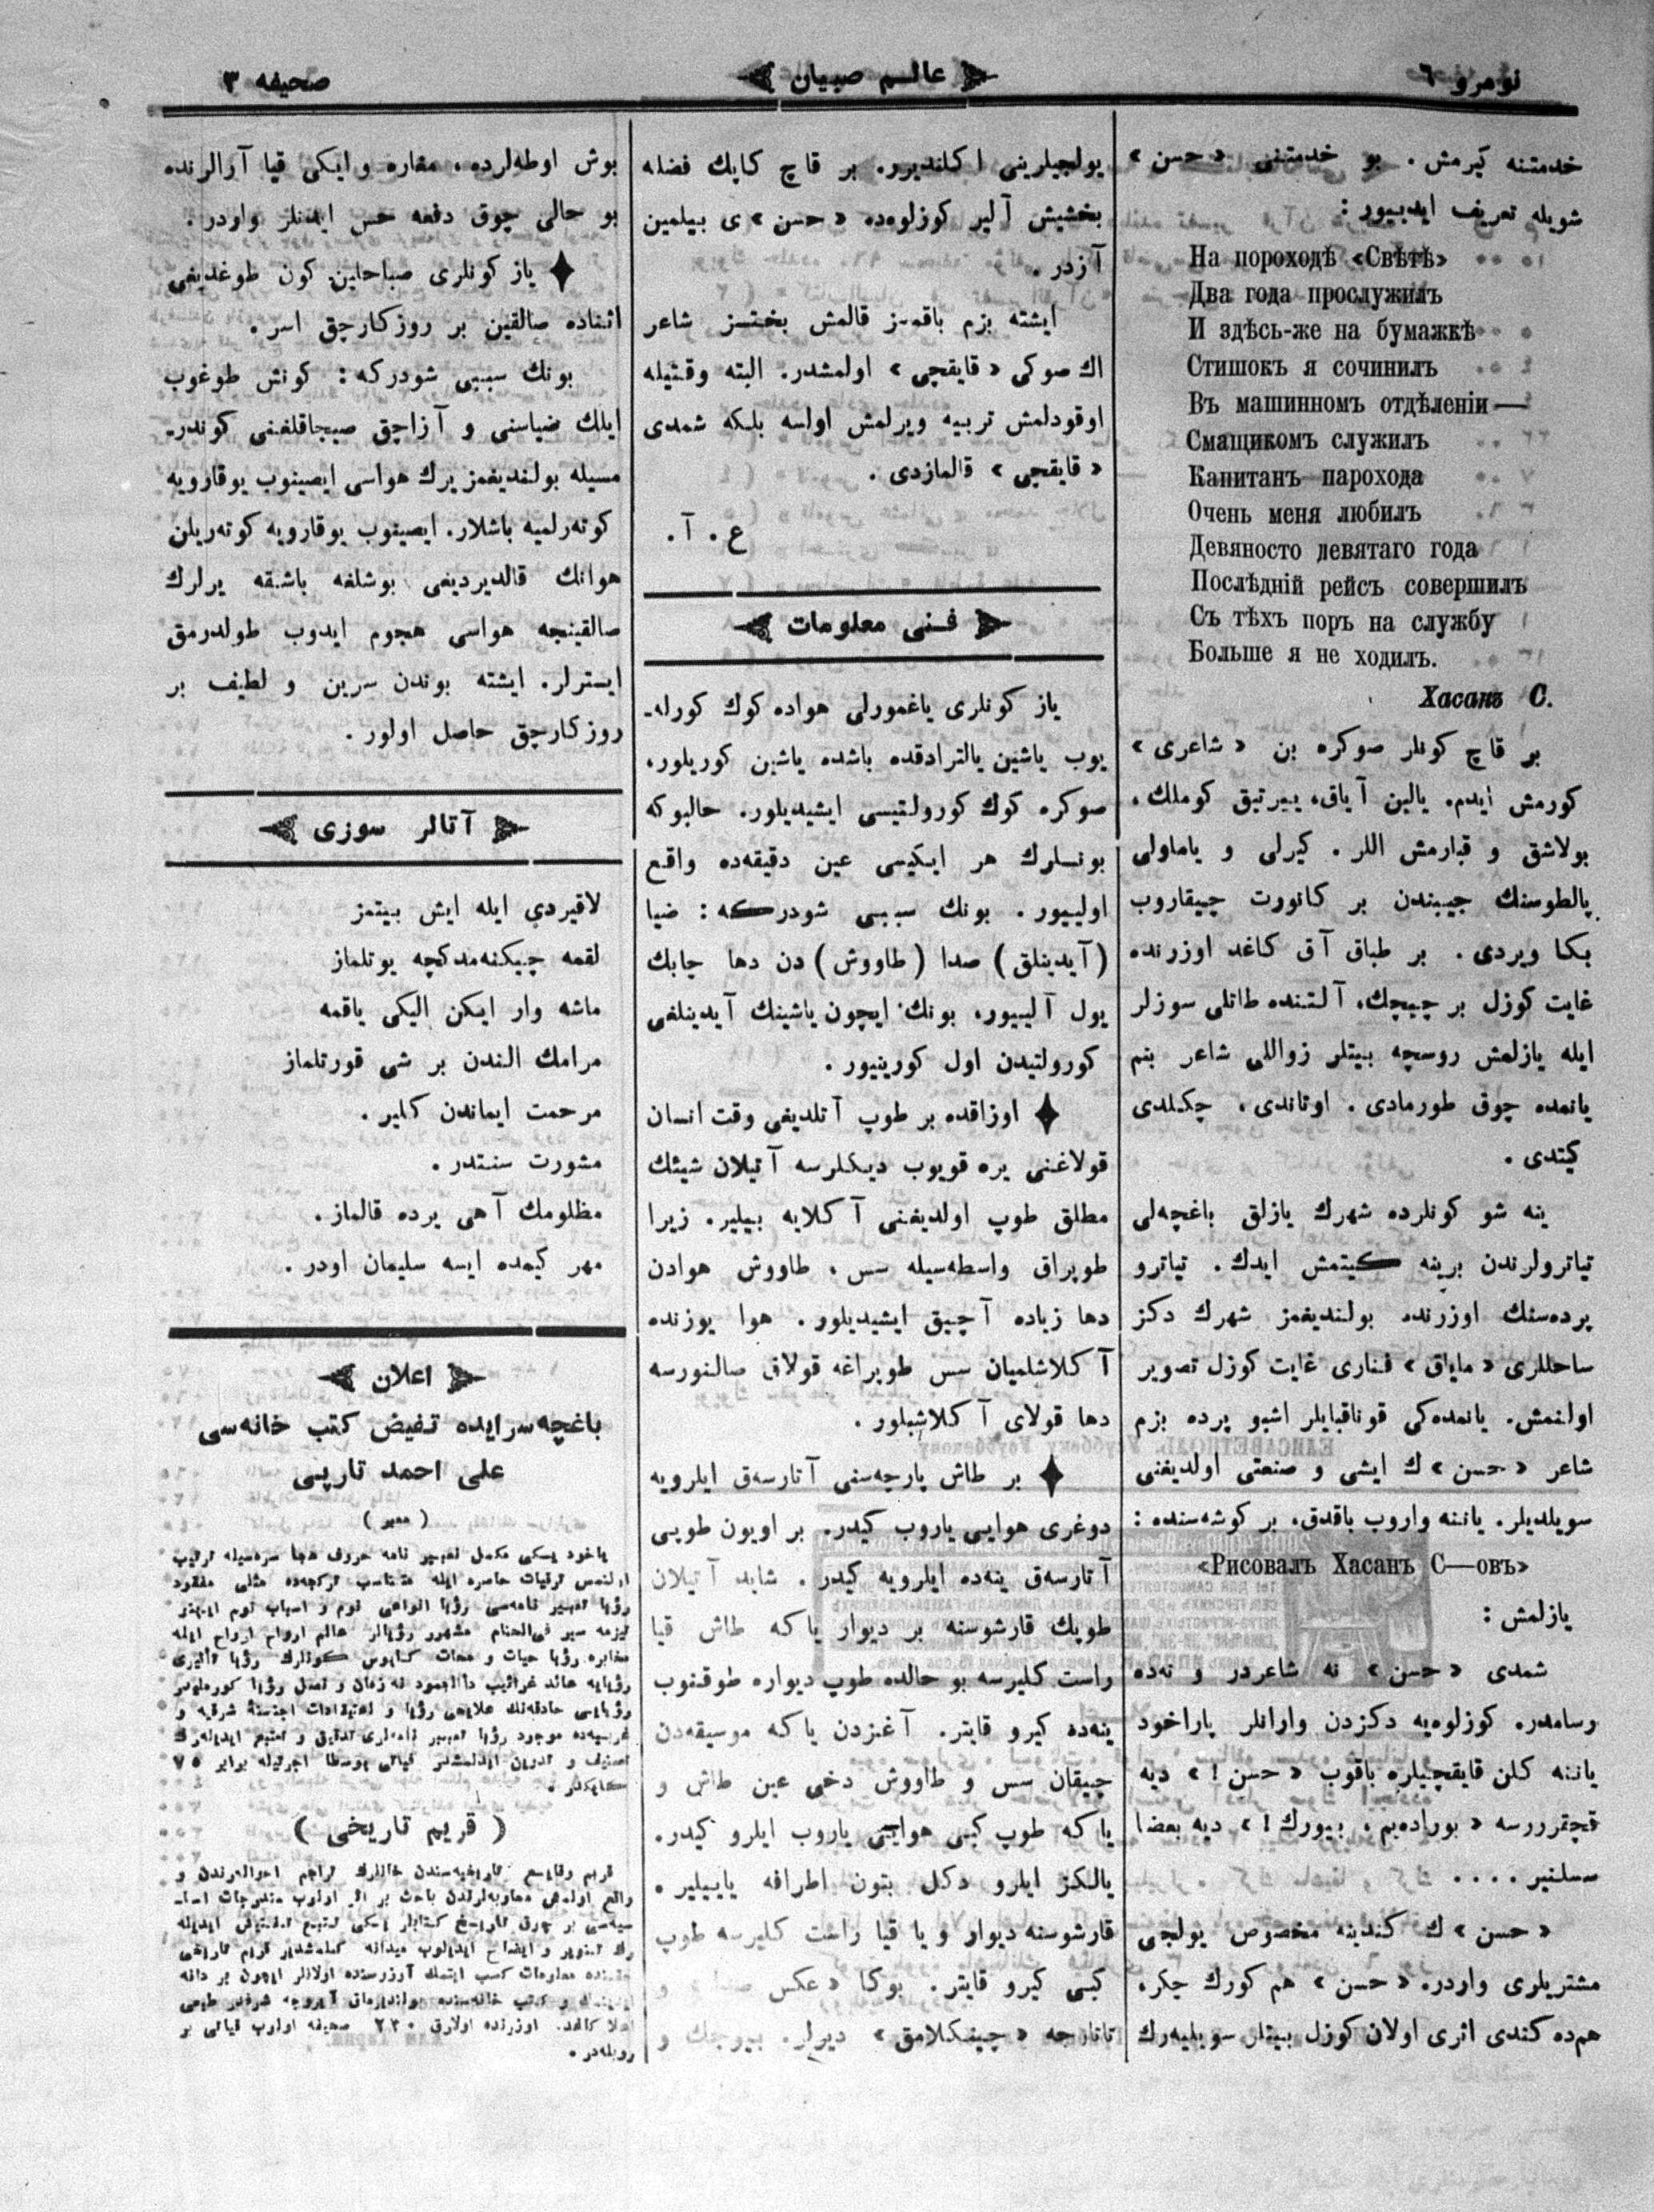 نومرو ٦
عالم صبيان
صحيفه ٣
خدمتنه كيرمش. بو خدمتنى «حسن»
شويله تعريف ايدييور:
На пороходѣ «Свѣтѣ»
Два года прослужилъ
И здѣсь-же на бумажкѣ
Стишокъ я сочинилъ
Въ машинномъ отдѣленіи—
Смащикомъ служилъ
Капитанъ парохода
Очень меня любилъ
Девяносто девятаго года
Послѣдній рейсъ совершилъ
Съ тѣхъ поръ на службу
Больше я не ходилъ.
Хасанъ С.
بر قاچ كونلر صوكره بن «شاعرى»
كورمش ايدم. يالين آياق، ييرتيق كوملك،
بولاشق و قبارمش اللر. كيرلى و ياماولى
پالطوسنك جيبندن بر كانورت چيقاروب
بكا ويردى. بر طباق آق كاغد اوزرنده
غايت كوزل بر چيچك، آلتنده طاتلى سوزلر
ايله يازلمش روسچه بيتلر زواللى شاعر بنم
يانمده چوق طورمادى. اوتاندى. چكلدى
كيتدى.
ينه شو كونلرده شهرك يازلق باغچه‌لى
تياترولرندن برينه كيتمش ايدك. تياترو
پرده‌سنك اوزرنده بولنديغمز شهرك دكز
ساحللرى «ماياق» فنارى غايت كوزل تصوير
اولنمش. يانمده‌كى قوناقبايلر اشبو پرده بزم
شاعر «حسن»ك ايشى و صنعتى اولديغنى
سويلديلر. ياننه واروب باقدق، بر كوشه‌سنده:
«Рисовалъ Хасанъ С—овъ»
يازلمش:
شمدى «حسن» نه شاعردر و نه‌ده
رسامدر. كوزلوه‌يه دكزدن وارانلر پاراخود
ياننه كلن قايقچيلره باقوب «حسن!» ديه
قچقررسه «بوراده‌يم، بيورك!» ديه بعضا
سسلنير....
«حسن»ك كندينه مخصوص يولجى
مشتريلرى واردر. «حسن» هم كورك چكر،
هم‌ده كندى اثرى اولان كوزل بيتلر سويليه‌رك
يولجيلرينى اكلنديرر. بر قاچ كاپك فضله
بخشيش آلير كوزلوه‌ده «حسن»ى بيلمين
آزدر.
ايشته بزم باقمسز قالمش بختسز شاعر
اك صوكى «قايقچى» اولمشدر. البته وقتيله
اوقودلمش تربيه ويرلمش اولسه بلكه شمدى
«قايقچى» قالمازدى.
ع. آ.
فنى معلومات
ياز كونلرى ياغمورلى هواده كوك كورله-
يوب ياشين يالترادقده باشده ياشين كوريلور،
صوكره كوك كورولتيسى ايشيديلور. حالبوكه
بونلرك هر ايكيسى عين دقيقه‌ده واقع
اولييور. بونك سببى شودركه: ضيا
(آيدينلق) صدا (طاووش) دن دها چابك
يول آلييور، بونك ايچون ياشينك آيدينلغى
كورولتيدن اول كورينيور.
اوزاقده بر طوپ آتلديغى وقت انسان
قولاغنى يره قويوب ديكلرسه آتيلان شيئك
مطلق طوپ اولديغنى آكلايه بيلير. زيرا
طوپراق واسطه‌سيله سس، طاووش هوادن
دها زياده آچيق ايشيديلور. هوا يوزنده
آكلاشلميان سس طوپراغه قولاق صالنورسه
دها قولاى آكلاشيلور.
بر طاش پارچه‌سنى آتارسه‌ق ايلرويه
دوغرى هوايى ياروب كيدر. بر اويون طوپى
آتارسه‌ق ينه‌ده ايلرويه كيدر. شايد آتيلان
طوپك قارشوسنه بر ديوار ياكه طاش قيا
راست كليرسه بو حالده طوپ ديواره طوقنوب
ينه‌ده كيرو قايتر. آغزدن ياكه موسيقه‌دن
چيقان سس و طاووش دخى عين طاش و
ياكه طوپ كبى هوايى ياروب ايلرو كيدر.
يالكز ايلرو دكل بتون اطرافه ياييلير.
قارشوسنه ديوار و يا قيا راست كليرسه طوپ
كبى كيرو قايتر. بوكا «عكس صدا» و
تاتارجه «چينكلامق» ديرلر. و
بوش اوطه‌لرده، مغاره و ايكى قيا آرالرنده
بو حالى چوق دفعه حس ايدنلر واردر.
ياز كونلرى صباحلين كون طوغديغى
اثناده صالقين بر روزكارچق اسر.
بونك سببى شودركه: كونش طوغوب
ايلك ضياسنى و آزاچق صيجاقلغنى كوندر-
مسيله بولنديغمز يرك هواسى ايصينوب يوقارويه
كوته‌رلميه باشلار. ايصينوب يوقارويه كوته‌ريلن
هوانك قالديرديغى بوشلغه باشقه يرلرك
صالقينجه هواسى هجوم ايدوب طولدرمق
ايسترلر. ايشته بوندن سرين و لطيف بر
روزكارچق حاصل اولور.
آتالر سوزى
لاقيردى ايله ايش بيتمز
لقمه چيكنه‌مدكچه يوتلماز
ماشه وار ايكن اليكى ياقمه
مرامك الندن بر شى قورتلماز
مرحمت ايماندن كلير.
مشورت سنتدر.
مظلومك آهى يرده قالماز.
مهر كيمده ايسه سليمان اودر.
اعلان
باغچه‌سرايده تفيض كتب خانه‌سى
على احمد تارپى
(معبر)
ياخود يسكى مكمل تعبير نامه حروف هجا سره‌سيله ترتيب
رؤيا تعبير نامه‌سى رؤيا انواعى نوم و اسباب نوم
مخابره رؤيا حيات و ممات كابوس كونلرك رؤيا تأثيرى
(قريم تاريخى)
اعلا كاغد. اوزرنده اولارق ٢٢٠ صحيفه اولوب فيأتى بر
روبله‌در.